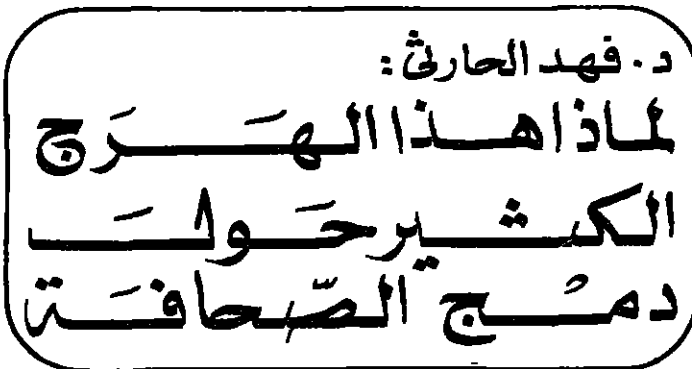 د. فهد الحارثي :
لماذا هذا الهَرَج
الكثير حَول
دمْج الصّحافَة